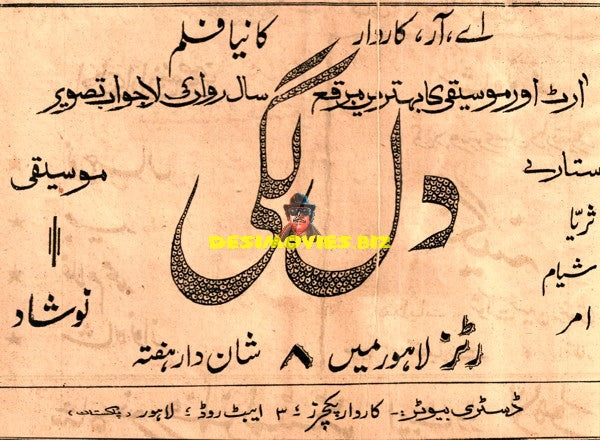 اے، آر، کاردار کا نیا فلم
آرٹ اور موسیقی کا بہترین مرقع سال رواں کی لاجواب تصویر
دل لگی
ستارے
ثریا
شیام
امر
موسیقی
نوشاد
DESIMOVIES.BIZ
رٹز لاہور میں ۸ شان دار ہفتہ
ڈسٹری بیوٹر:- کاردار پکچرز ؛ ۳ ایبٹ روڈ ؛ لاہور (پاکستان)